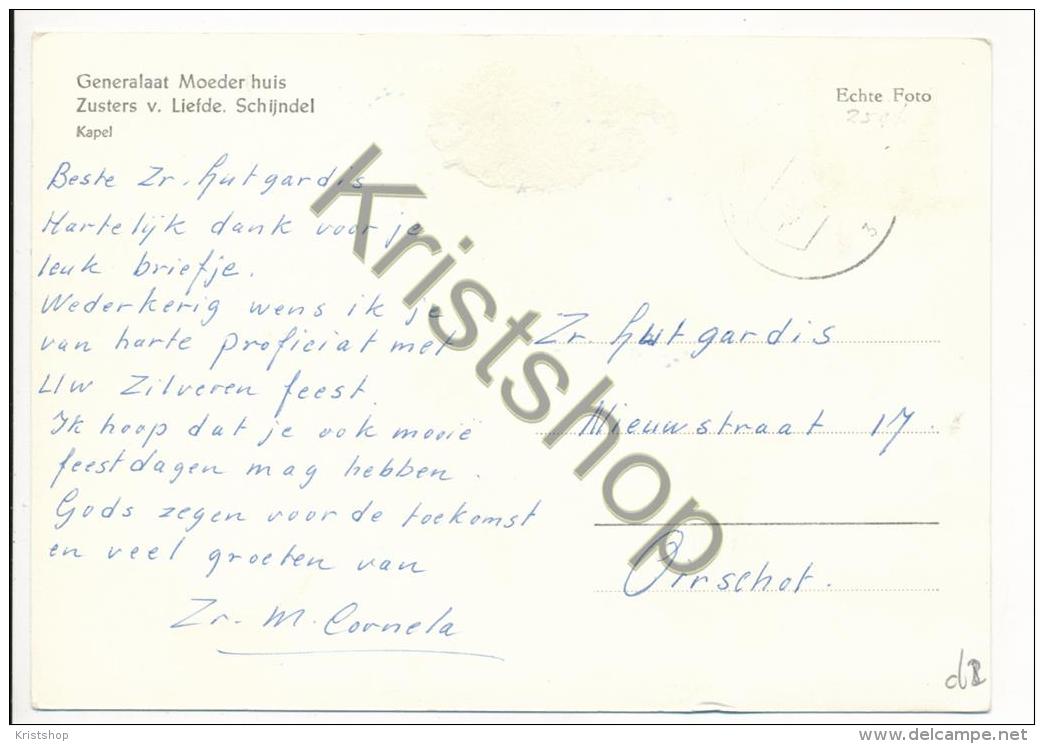 Generalaat Moederhuis
Zusters v. Liefde. Schijndel
Kapel
Echte Foto
Beste Zr. Lutgardis
Hartelijk dank voor je
leuk briefje.
Wederkerig wens ik je
van harte proficiat met
Uw Zilveren feest.
Ik hoop dat je ook mooie
feestdagen mag hebben.
Gods zegen voor de toekomst
en veel groeten van
Zr. M. Cornela
Zr. Lutgardis
Nieuwstraat 17.
Oirschot.
Kristshop
Kristshop
www.delcampe.net